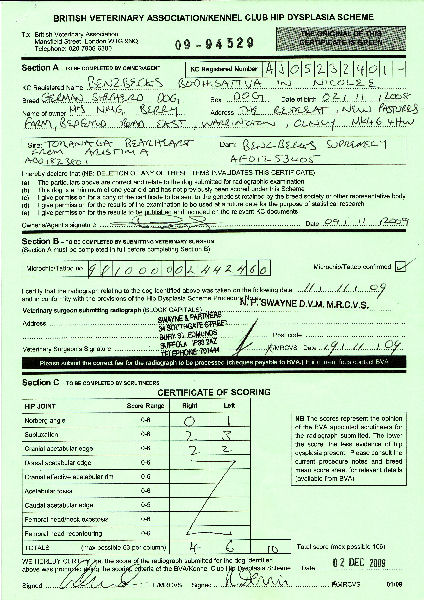 BRITISH VETERINARY ASSOCIATION/KENNEL CLUB HIP DYSPLASIA SCHEME
To: British Veterinary Association
Mansfield Street, London W1G 9NQ
Telephone: 020 7636 6380
09-94529
Section A TO BE COMPLETED BY OWNER/AGENT
KC Registered Number
KC Registered Name BENZBECKS BODHISATTVA IN NICOLES
Breed GERMAN SHEPHERD DOG Sex DOG Date of birth
Name of owner MRS NMG BERRY Address THE RETREAT, NEW PASTURES
FARM, BEDFORD ROAD EAST
Sire:
FROM AUSTRIA
Dam: BENZBECKS SUPREMELY
I hereby declare that (NB: DELETION OF ANY OF THE ITEMS INVALIDATES THIS CERTIFICATE)
(a) The particulars above are correct and relate to the dog submitted for radiographic examination
(b) This dog is a minimum of one year old and has not previously been scored under this Scheme
(c) I give permission for a copy of the certificate to be sent to the geneticist retained by the breed society or other representative body
(d) I give permission for the results of the examination to be used at a future date for the purpose of statistical research
(e) I give permission for the results to be published and included on the relevant KC documents
Owner/Agent's signature Date 09 / 11 / 2009
Section B - TO BE COMPLETED BY SUBMITTING VETERINARY SURGEON
(Section A must be completed in full before completing Section B)
Microchip/Tattoo no Microchip/Tattoo confirmed
I certify that the radiograph relating to the dog identified above was taken on the following date 11 / 11 / 09
and in conformity with the provisions of the Hip Dysplasia Scheme Procedure Notes
N. P. SWAYNE D.V.M. M.R.C.V.S.
Veterinary surgeon submitting radiograph (BLOCK CAPITALS)
Address
SWAYNE & PARTNERS
34 SOUTHGATE STREET
BURY ST. EDMUNDS
SUFFOLK IP33 2AZ
TELEPHONE 701444
Post code
Veterinary Surgeon's Signature MRCVS Date
Please submit the correct fee for the radiograph to be processed (cheques payable to BVA)
Section C TO BE COMPLETED BY SCRUTINEERS
CERTIFICATE OF SCORING
HIP JOINT Score Range Right Left
Norberg angle 0-6 0 1
Subluxation 0-6 2 3
Cranial acetabular edge 0-6 2 2
Dorsal acetabular edge 0-6
Cranial effective acetabular rim 0-6
Acetabular fossa 0-6
Caudal acetabular edge 0-5
Femoral head/neck exostosis 0-6
Femoral head recontouring 0-6
TOTALS (max possible 53 per column) 4 6 10 Total score (max possible 106)
NB The scores represent the opinion
of the BVA appointed scrutineers for
the radiograph submitted. The lower
the score, the less evidence of hip
dysplasia present. Please consult the
current procedure notes and breed
mean score sheet for relevant details
(available from BVA)
WE HEREBY CERTIFY that the score of the radiograph submitted for the dog identified
above was promoted using the scoring criteria of the BVA/Kennel Club Hip Dysplasia Scheme Date 02 DEC 2009
Signed F/MRCVS Signed F/MRCVS 01/09